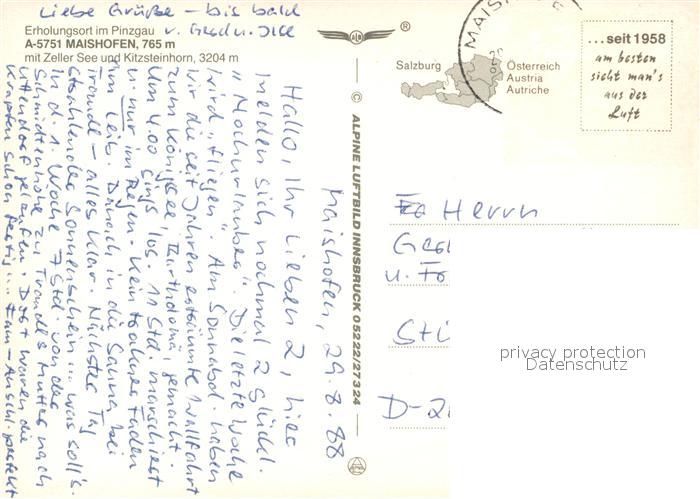 Liebe Grüße – bis bald
Erholungsort im Pinzgau
A-5751 MAISHOFEN, 765 m
mit Zeller See und Kitzsteinhorn, 3204 m
®
MAISH
Salzburg
Österreich
Austria
Autriche
...seit 1958
am besten
sieht man's
aus der
Luft
© ALPINE LUFTBILD INNSBRUCK 05222/27324
Maishofen, 29.8.88
Hallo, Ihr Lieben 2, hier
melden sich nochmal 2 glückl.
"Nochurlauber". Die letzte Woche
wird "fliegen". Am Sonnabd. haben
wir die seit Jahren erträumte Wallfahrt
zum Königsee, Barthlomä, gemacht.
Um 4.00 ging's los. 11 Std. marschiert
u. nur im Regen. Kein trockner Faden
am Leib. Danach in die Sauna bei
Traudl – alles klar. Nächster Tag
strahlender Sonnenschein ... was soll's.
In d. 1. Woche 7 Std. von der
Schmidtenhöhe zu Traudls Mutter nach
Uttendorf gelaufen. Dort waren die
Krapfen schon fertig ... Fam.-Anschl. perfekt
Herrn
u.
D-2
privacy protection
Datenschutz